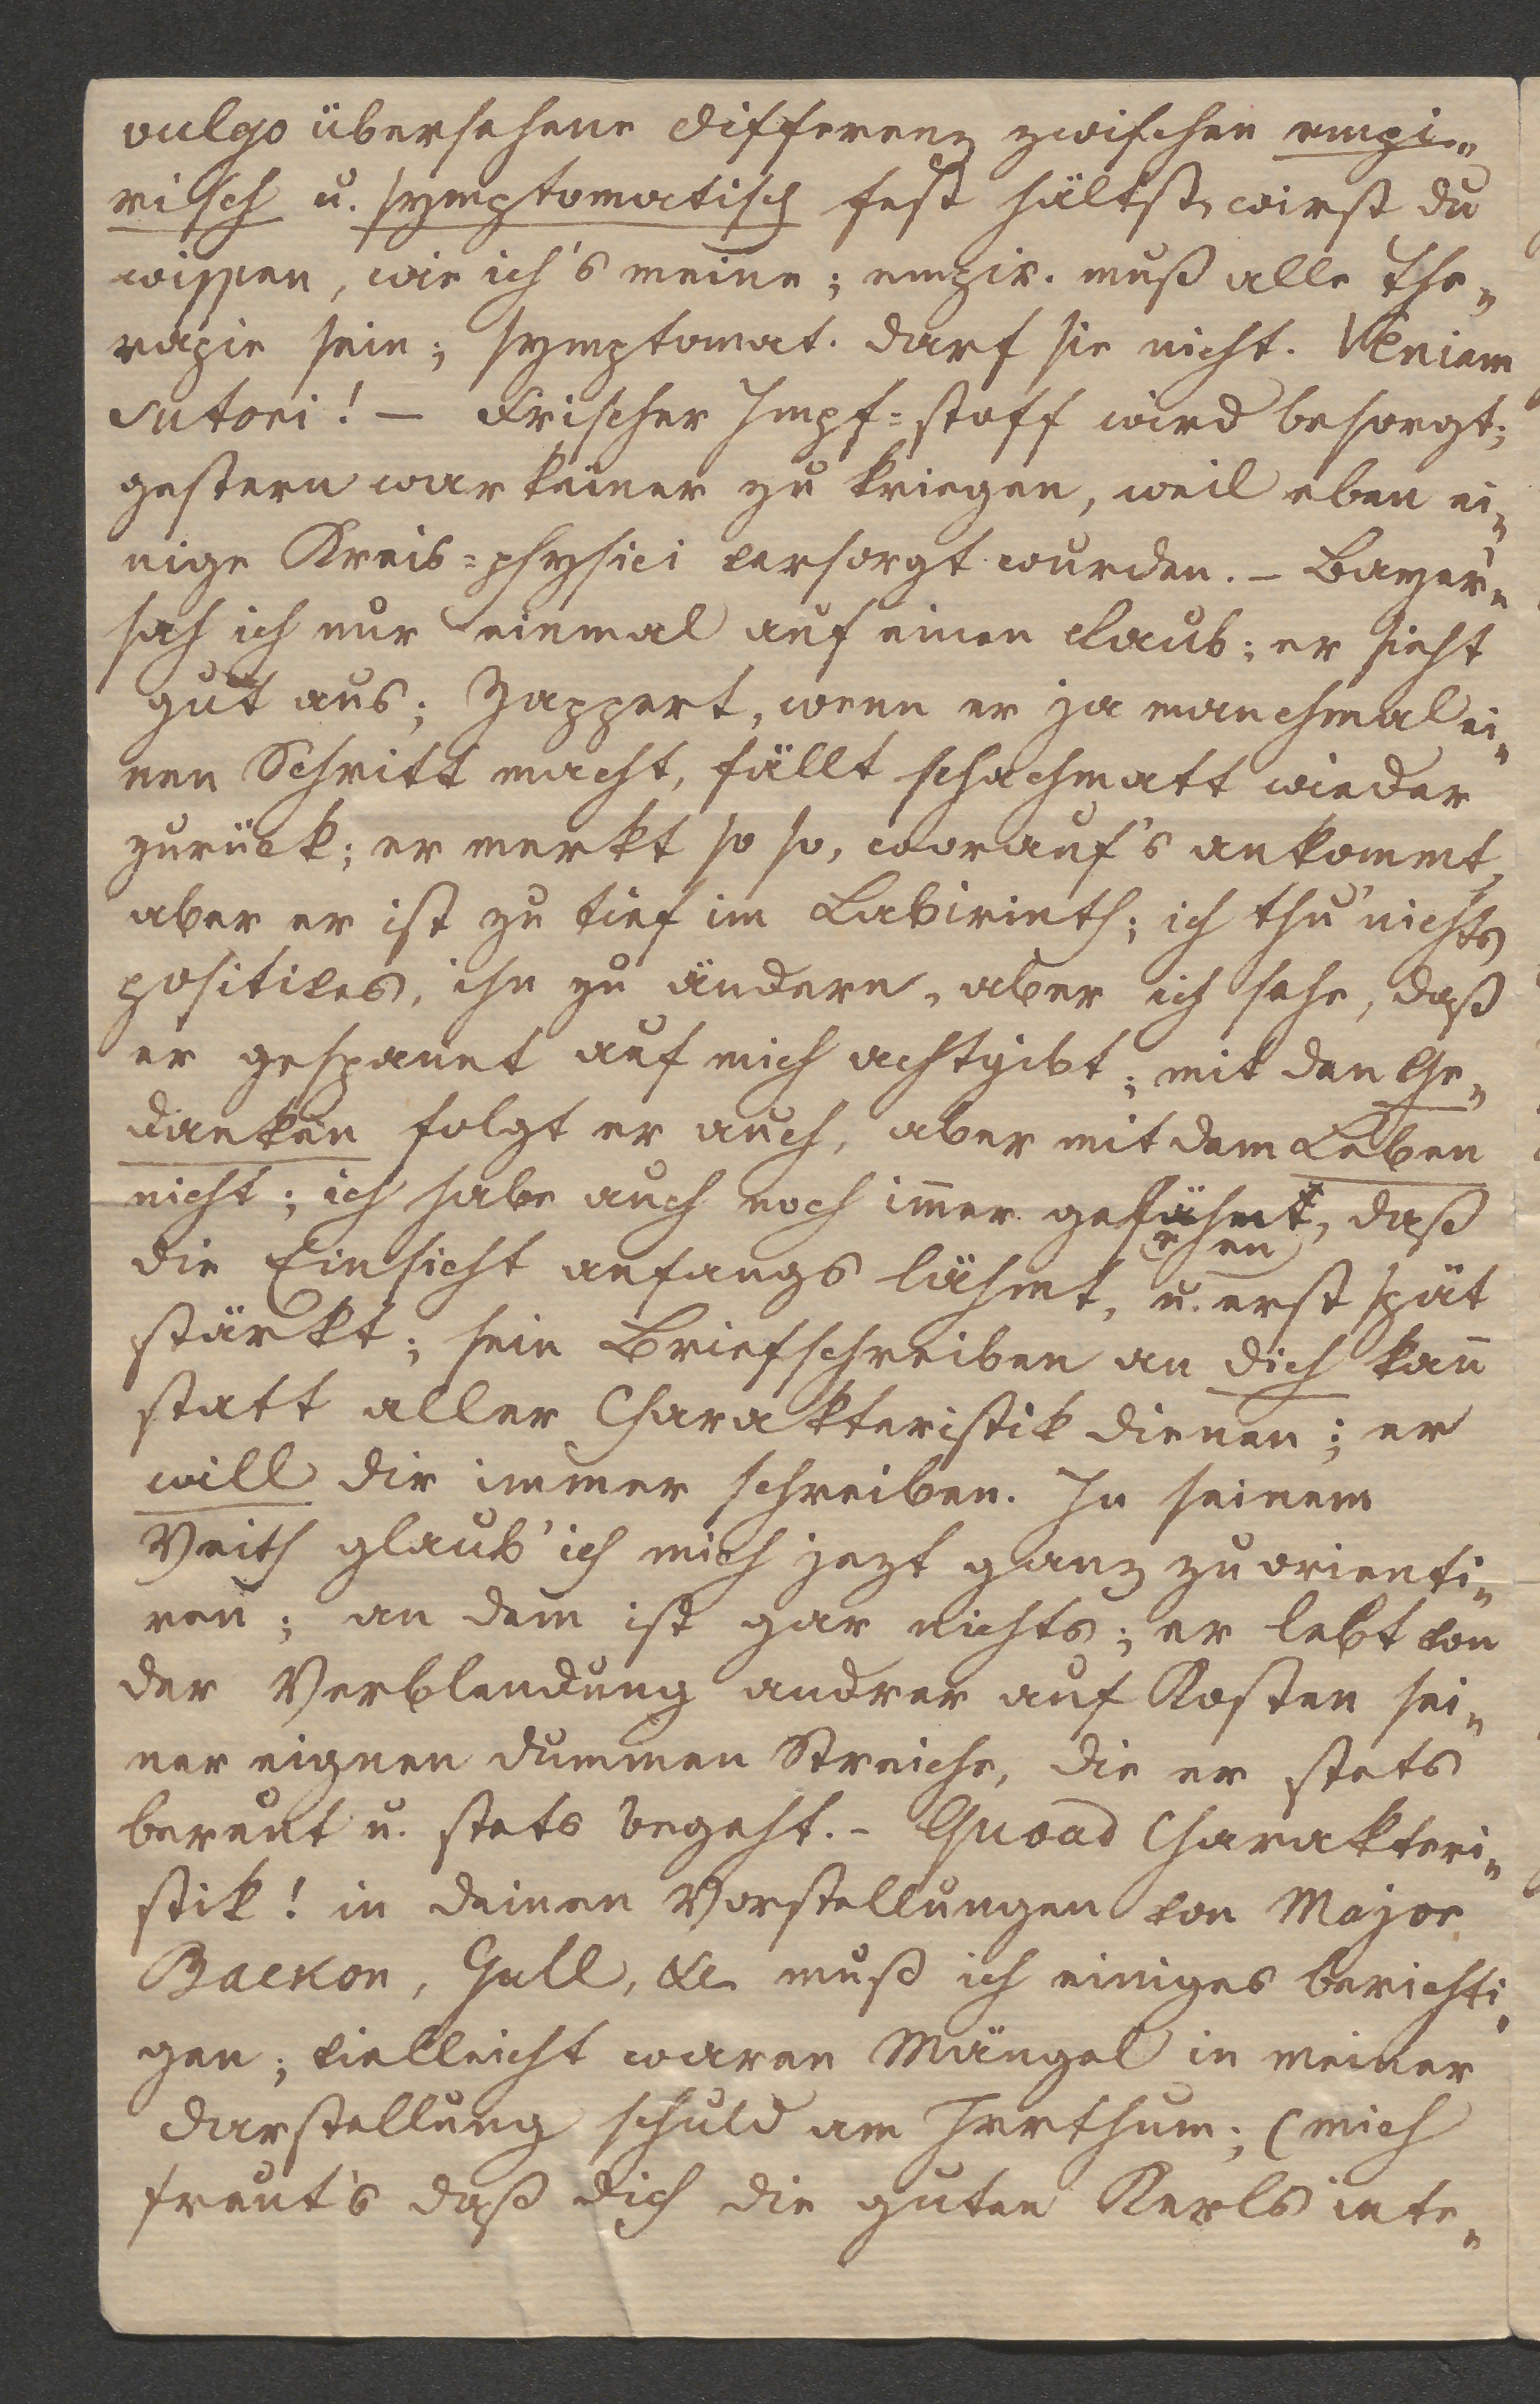 vulgo übersehene Differenz zwischen empi„
risch u. symptomatisch fest hältst, wirst du
wissen, wie ich's meine; empir. muß alle The„
rapie sein; symptomat. darf sie nicht. Veniam
sutori! — Frischer Impf=stoff wird besorgt;
gestern war keiner zu kriegen, weil eben ei„
nige Kreis=physici versorgt wurden. – Bayer„
sah ich nur einmal auf einen Staub; er sieht
gut aus; Zappert, wenn er ja manchmal ei„
nen Schritt macht, fällt schachmatt wieder
zurück; er merkt so so, worauf's ankommt,
aber er ist zu tief im Labirinth; ich thu' nichts
positives, ihn zu ändern, aber ich sehe, daß
er gespannt auf mich achtgibt; mit den Ge„
danken folgt er auch, aber mit dem Leben
nicht; ich habe auch noch im̄er gesehen, daß
die Einsicht anfangs lähmt, u. erst spät
stärkt; sein Briefschreiben an dich kan̄
statt aller Charakteristik dienen; er
will dir immer schreiben. In seinem
Veith glaub' ich mich jezt ganz zu orienti„
ren; an dem ist gar nichts; er lebt von
der Verblendung andrer auf Kosten sei„
ner eignen dummen Streiche, die er stets
bereut u. stets begeht. – Quoad Charakteri„
stik! in deinen Vorstellungen von Major
Backon, Gall, &c muß ich einiges berichti„
gen; vielleicht waren Mängel in meiner
Darstellung schuld am Irrthum; (mich
freut's daß dich die guten Kerls inte„